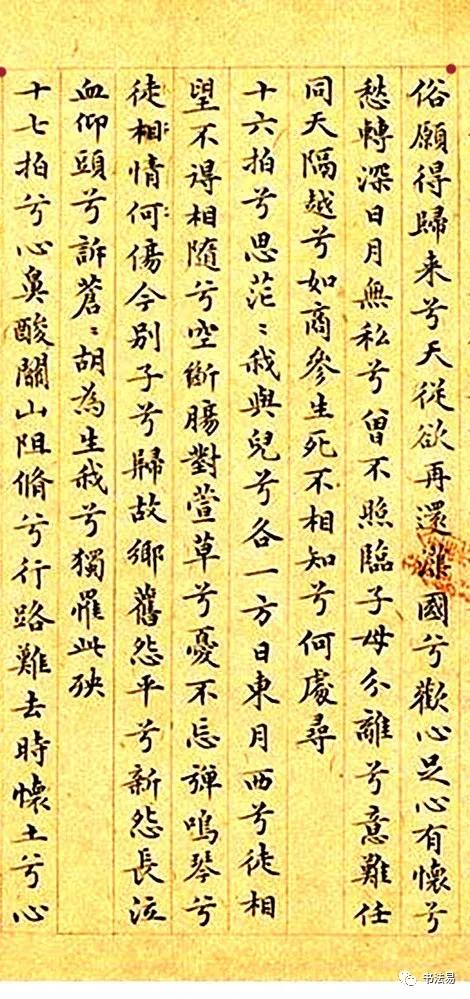 俗願得歸来兮天從欲再還漢國兮歡心足心有懷兮
愁轉深日月無私兮曾不照臨子母分離兮意難任
同天隔越兮如商參生死不相知兮何處尋
十六拍兮思茫〻我與兒兮各一方日東月西兮徒相
望不得相隨兮空斷腸對萱草兮憂不忘彈鳴琴兮
徒相情何傷今別子兮歸故鄉舊怨平兮新怨長泣
血仰頭兮訴蒼〻胡為生我兮獨罹此殃
十七拍兮心鼻酸關山阻脩兮行路難去時懷土兮心
书法易